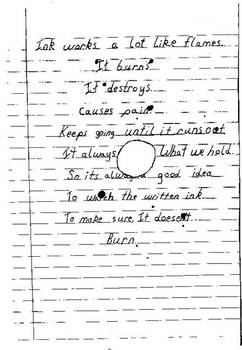 Ink works a lot like flames
It burns
It destroys
Causes pain
Keeps going until it runs out
It always What we hold
So its always a good idea
To watch the written ink
To make sure, It doesent
Burn